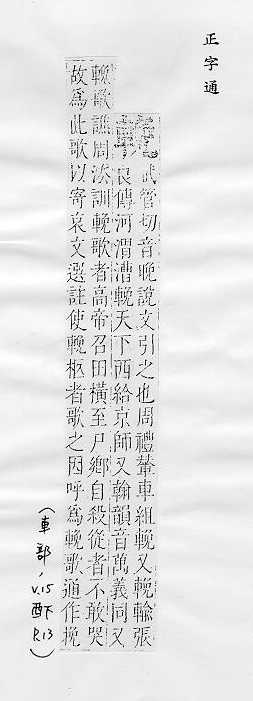 正字通
輓
武管切音晚說文引之也周禮輦車組輓又輓輸張
良傳河渭漕輓天下西給京師又翰韻音萬義同又
輓歌譙周法訓輓歌者高帝召田橫至尸鄉自殺從者不敢哭
故爲此歌以寄哀文選註使輓柩者歌之因呼爲輓歌通作挽
(車部, V.15
酉下
P.13)